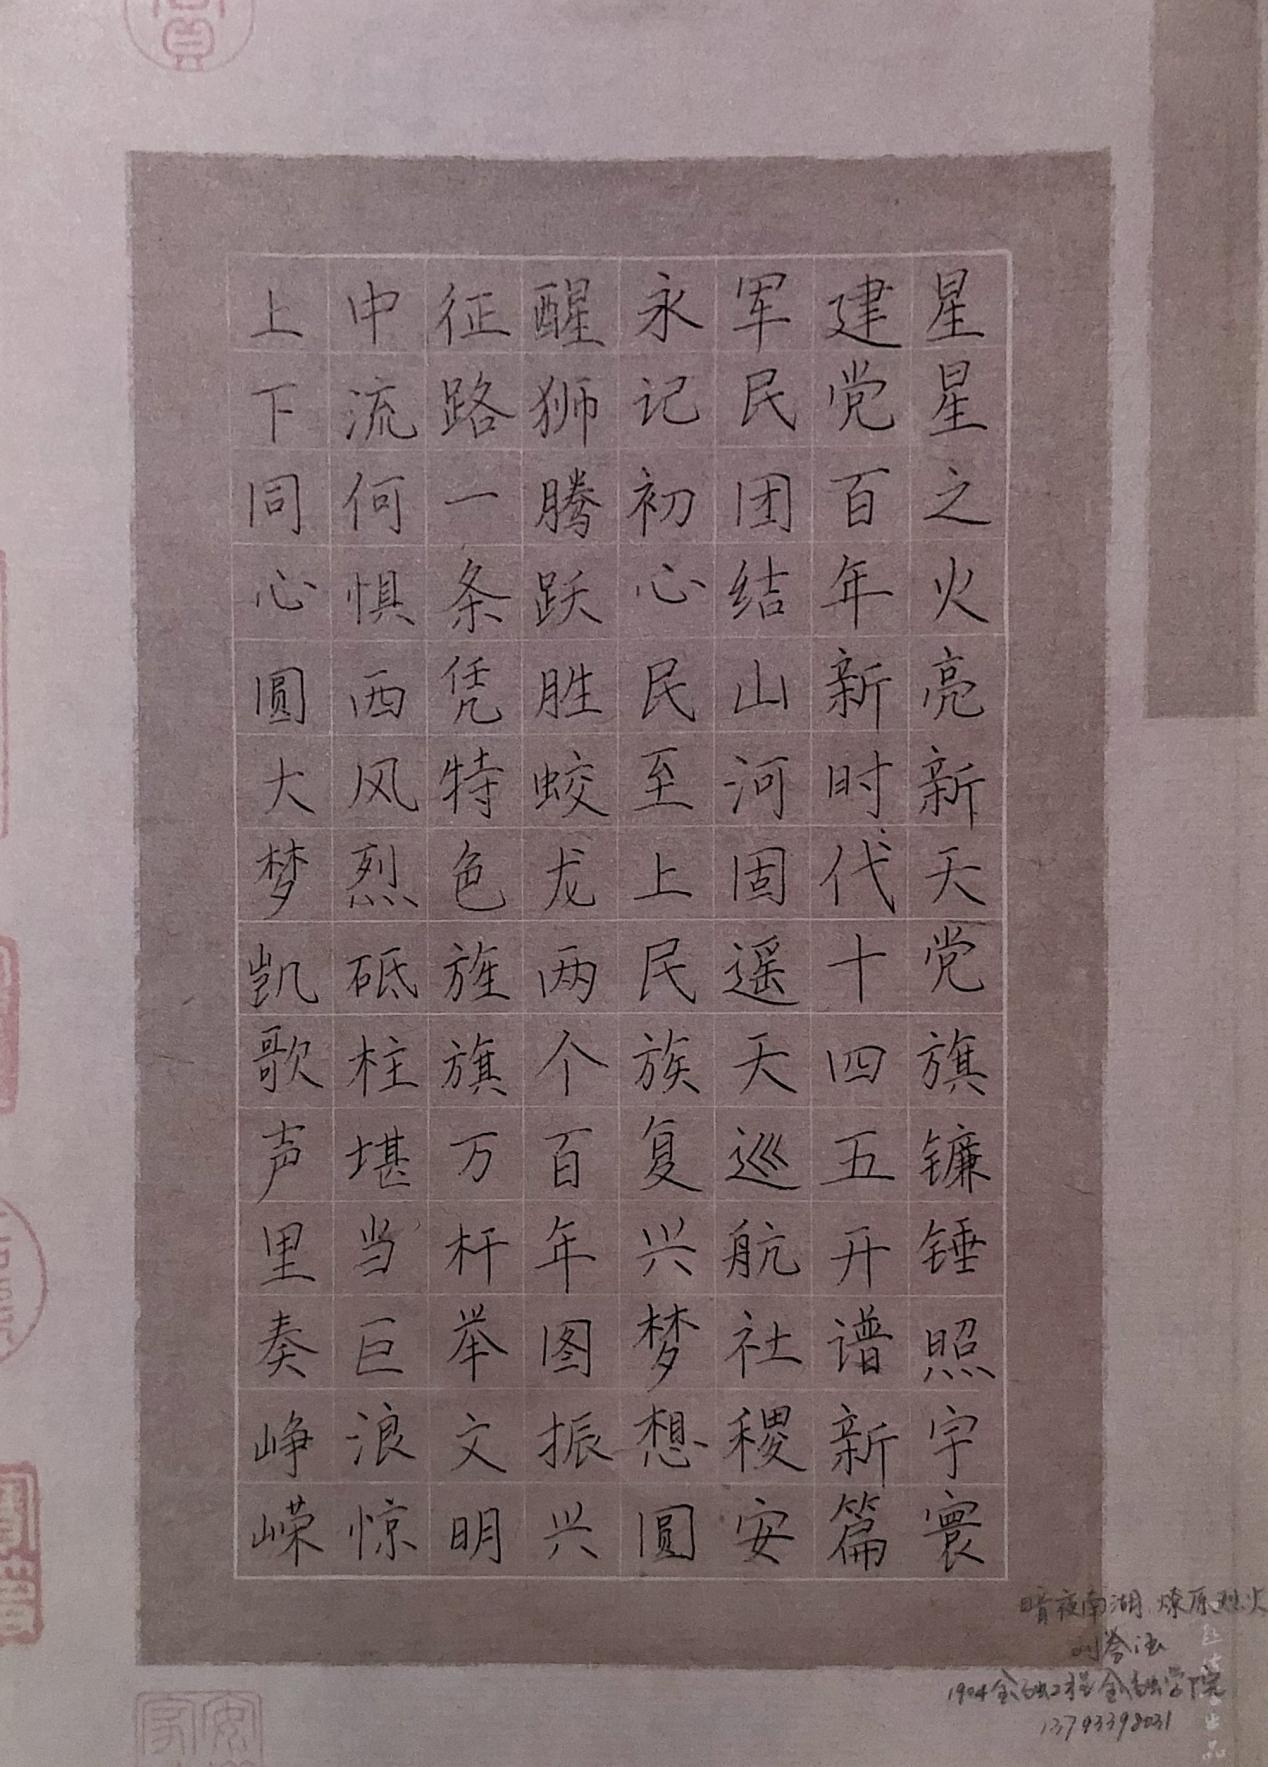 星星之火亮新天党旗镰锤照宇寰
建党百年新时代十四五开谱新篇
军民团结山河固遥天巡航社稷安
永记初心民至上民族复兴梦想圆
醒狮腾跃胜蛟龙两个百年图振兴
征路一条凭特色旌旗万杆举文明
中流何惧西风烈砥柱堪当巨浪惊
上下同心圆大梦凯歌声里奏峥嵘
暗夜南湖 燎原烈火
1904金融工程金融学院
13793398031
出品